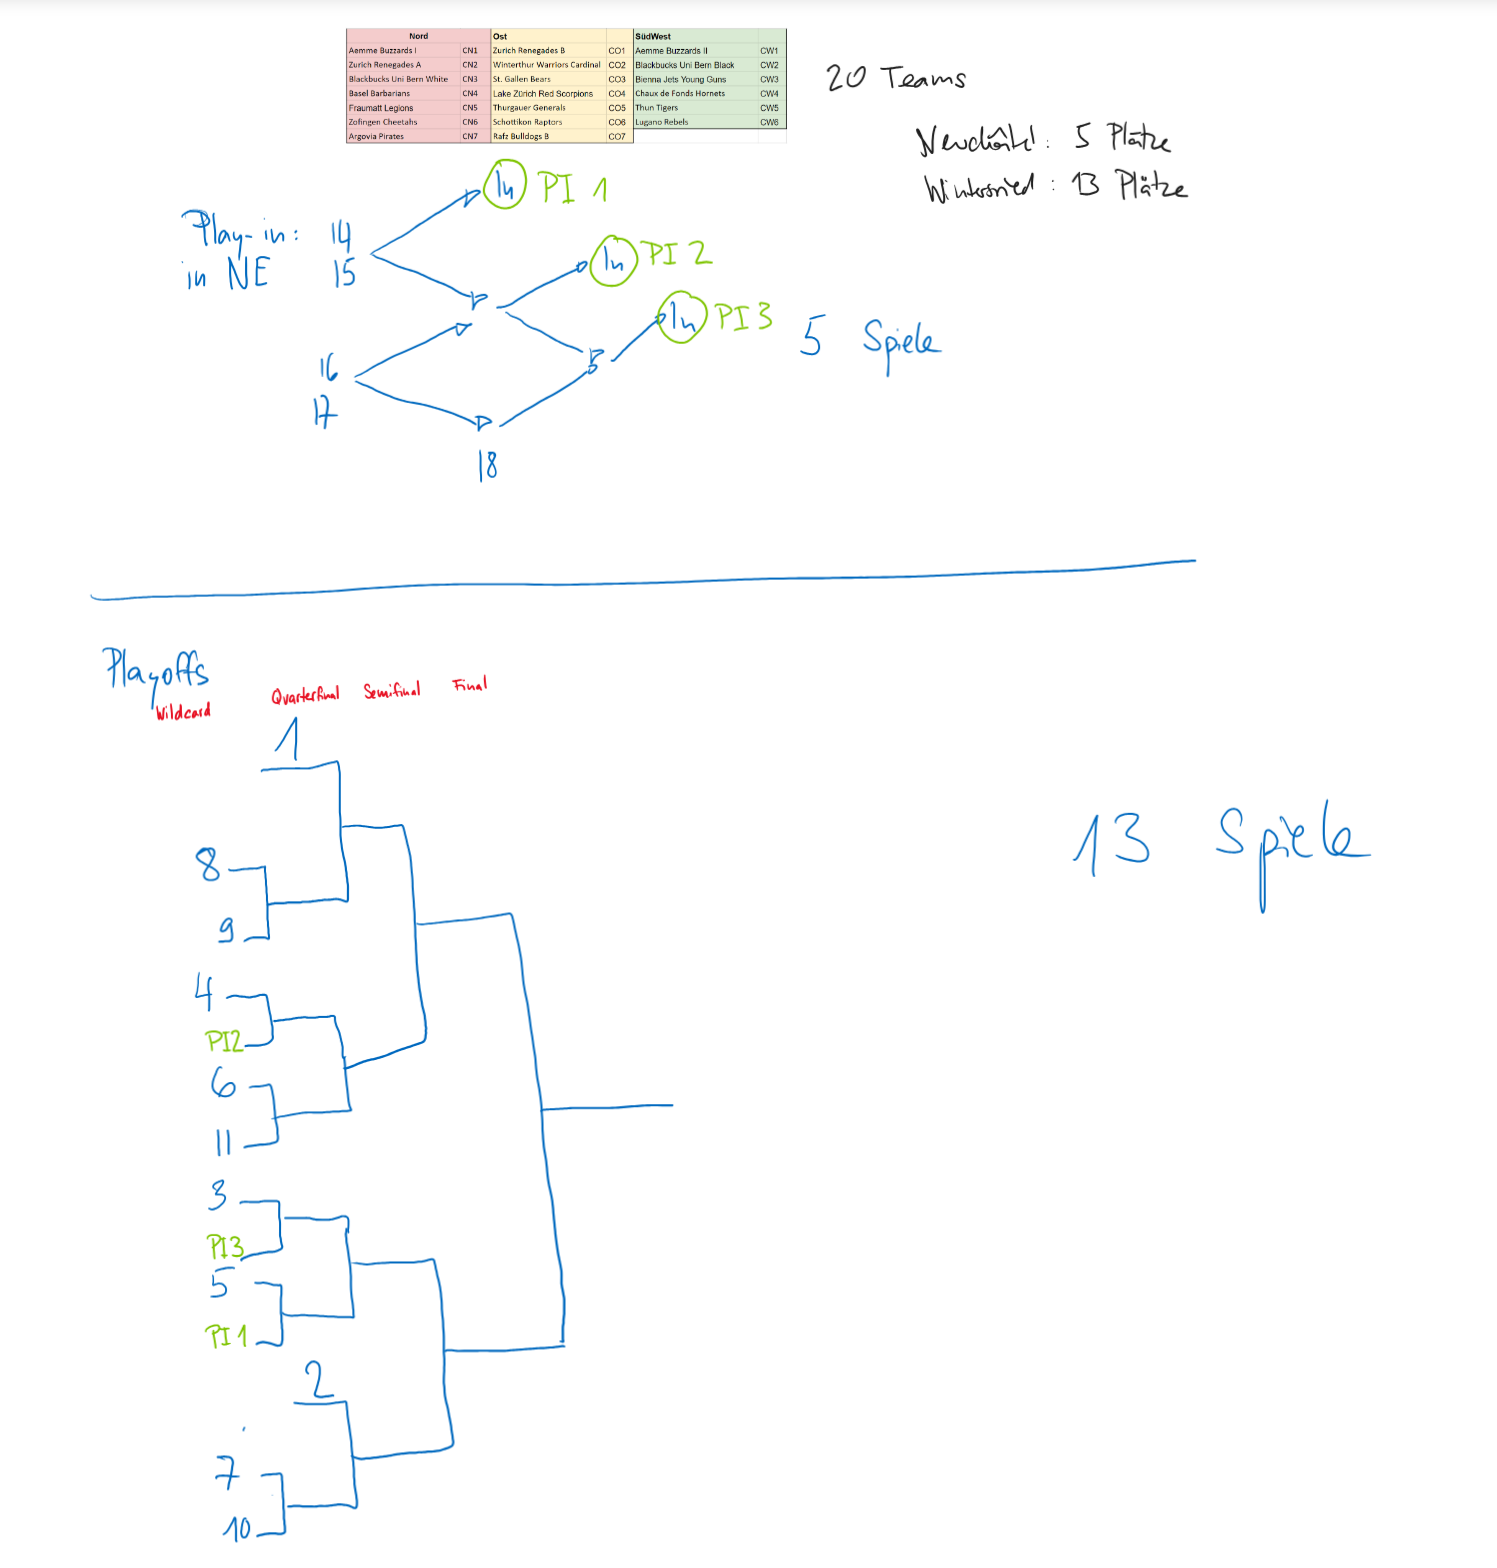 Nord Ost SüdWest
Aemme Buzzards I CN1 Zurich Renegades B CO1 Aemme Buzzards II CW1
Zurich Renegades A CN2 Winterthur Warriors Cardinal CO2 Blackbucks Uni Bern Black CW2
Blackbucks Uni Bern White CN3 St. Gallen Bears CO3 Bienna Jets Young Guns CW3
Basel Barbarians CN4 Lake Zürich Red Scorpions CO4 Chaux de Fonds Hornets CW4
Fraumatt Legions CN5 Thurgauer Generals CO5 Thun Tigers CW5
Zofingen Cheetahs CN6 Schottikon Raptors CO6 Lugano Rebels CW6
Argovia Pirates CN7 Rafz Bulldogs B CO7
20 Teams
: 5 Plätze
: 13 Plätze
In PI 1
Play-in: 14
in NE 15
In PI 2
In PI 3
5 Spiele
16
17
18
Playoffs
Wildcard Quarterfinal Semifinal Final
1
13 Spiele
8
9
4
PI2
6
11
3
PI3
5
PI1
2
7
10